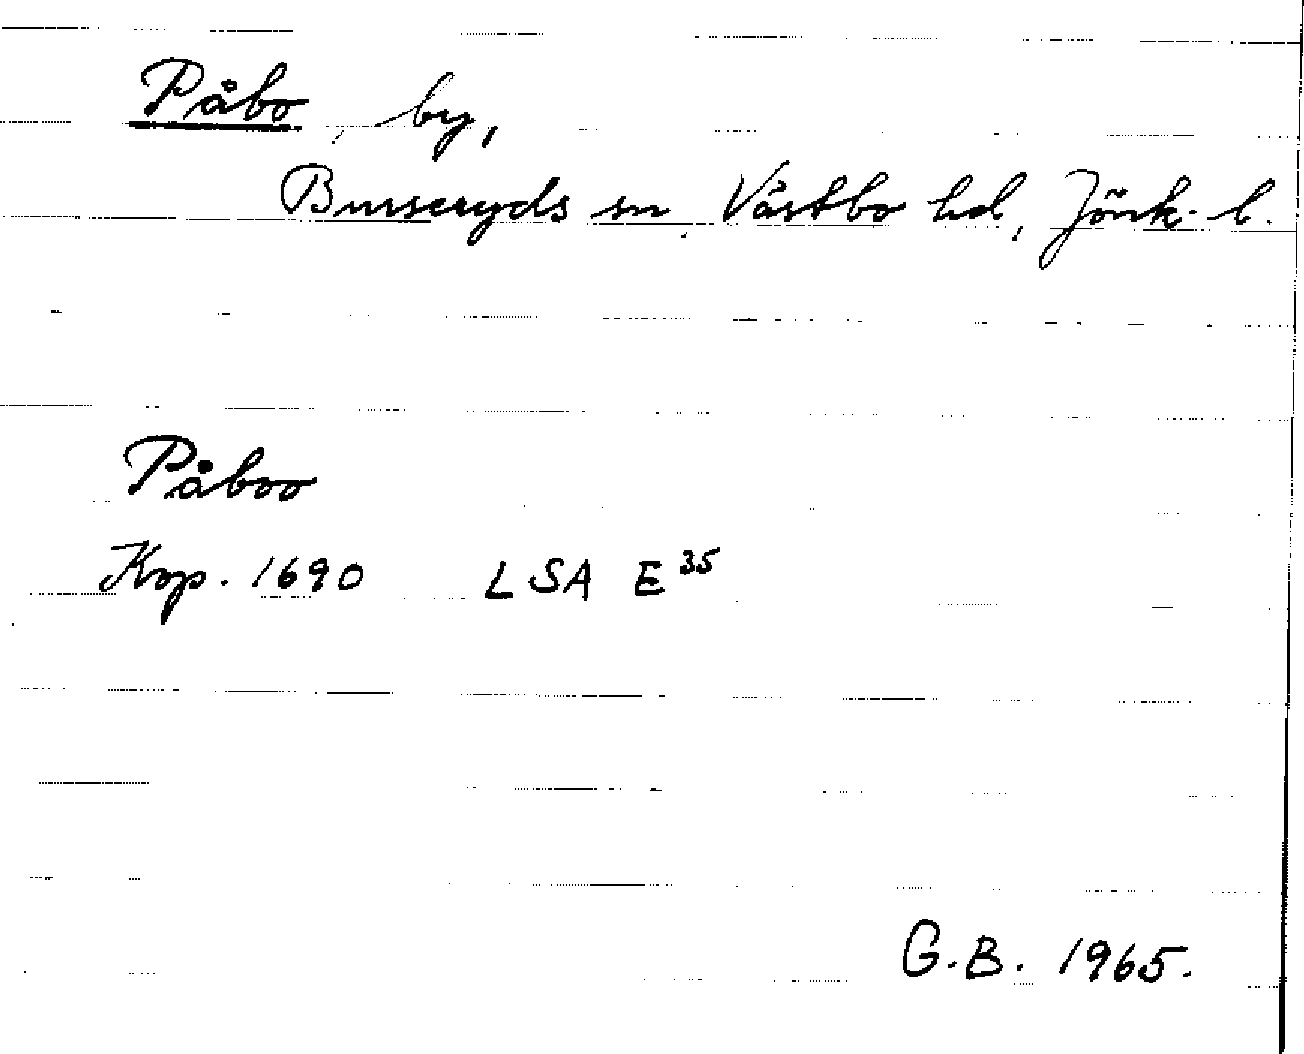 Påbo, by,
Burseryds sn, Västbo hd, Jönk. l.
Påboo
Kop. 1690 LSA E 35
G.B. 1965.